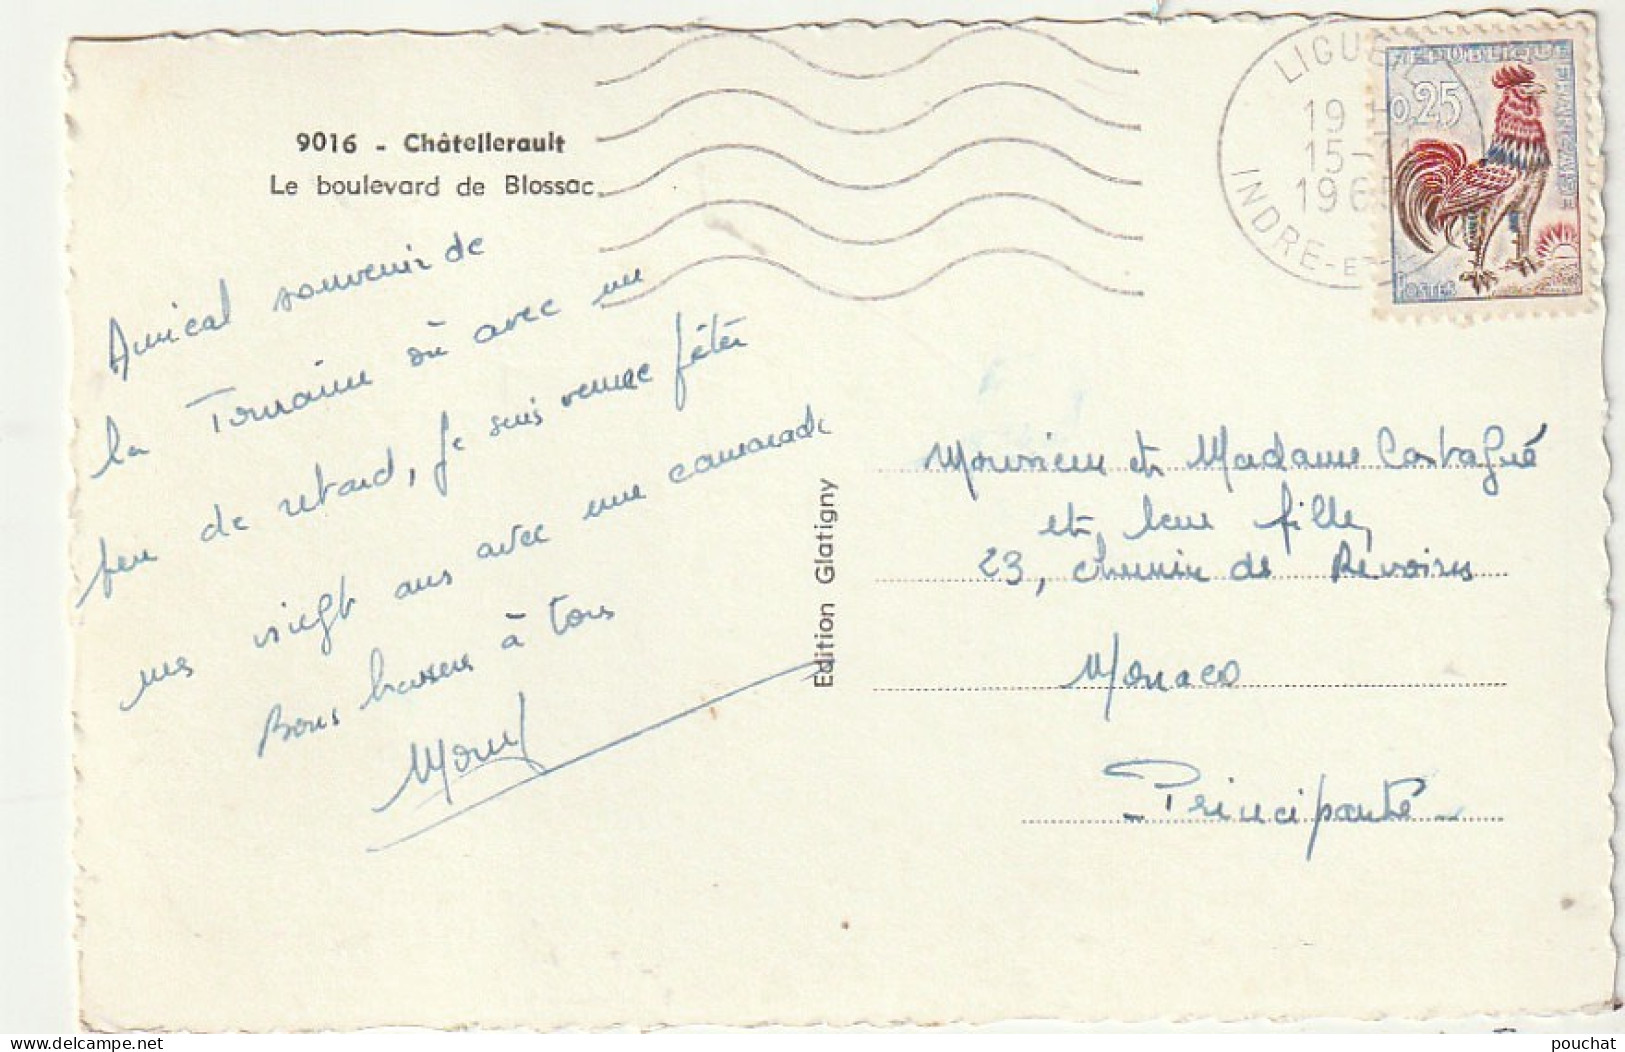 9016 - Châtellerault
Le boulevard de Blossac
Amical souvenir de
la Touraine où avec un
peu de retard, je suis venue fêter
mes vingt ans avec une camarade
Bons baisers à tous
Edition Glatigny
LIGUE
19
15-
1965
INDRE-E
REPUBLIQUE FRANÇAISE
0,25
POSTES
Monsieur et Madame Castagné
et leur fille,
23, chemin des Révoires
Monaco
- Principauté -
pouchat